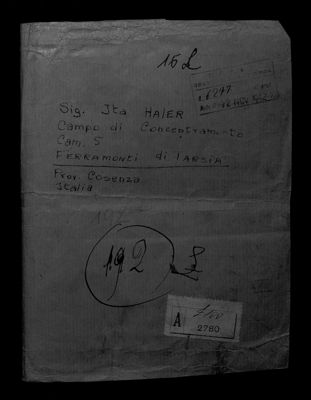 15 L
Sig. Ita HALER
Campo di Concentramento
Cam. 5
FERRAMONTI di TARSIA
Prov. Cosenza
Italia
192 L
A
2780